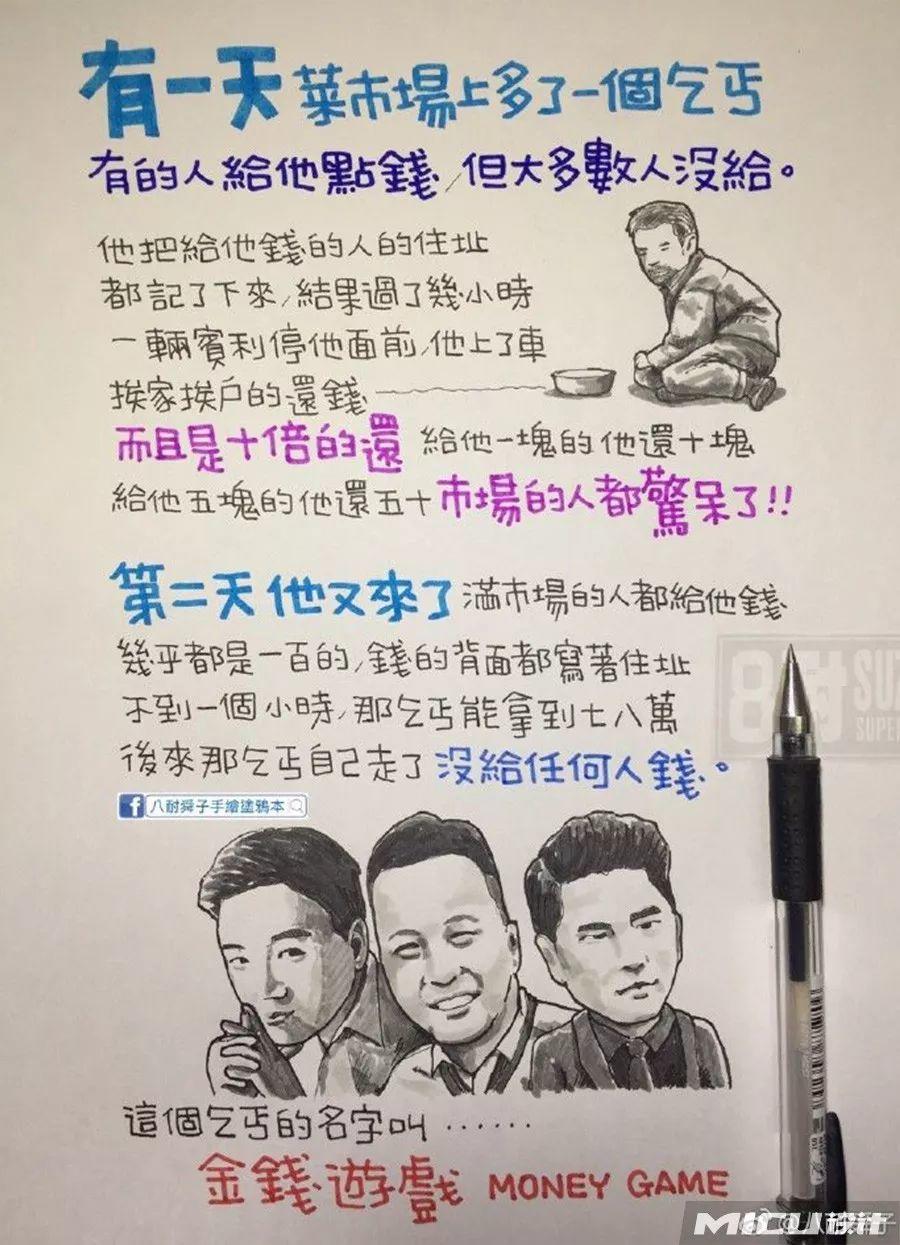 有一天 菜市場上多了一個乞丐
有的人給他點錢，但大多數人沒給。
他把給他錢的人的住址
都記了下來，結果過了幾小時
一輛賓利停他面前，他上了車
挨家挨戶的還錢
而且是十倍的還 給他一塊的他還十塊
給他五塊的他還五十 市場的人都驚呆了!!
第二天他又來了 滿市場的人都給他錢
幾乎都是一百的，錢的背面都寫著住址
不到一個小時，那乞丐能拿到七八萬
後來那乞丐自己走了 沒給任何人錢。
八耐舜子手繪塗鴉本
這個乞丐的名字叫……
金錢遊戲 MONEY GAME
8耐
SUZ
SUPER
MICU设计